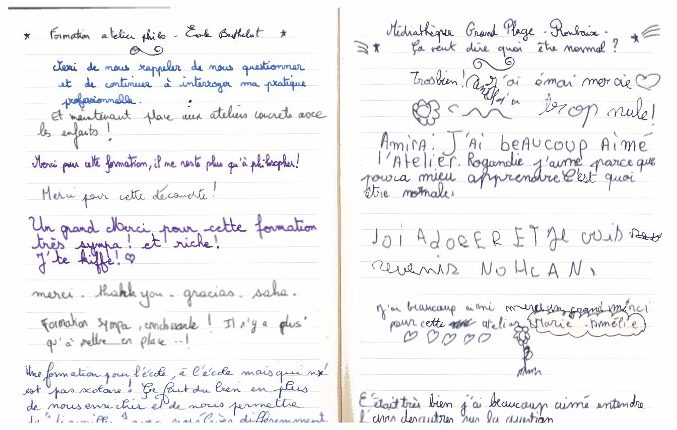 * Formation atelier philo - Ecole Berthelot *
Merci de nous rappeler de nous questionner
et de continuer à interroger ma pratique
professionnelle.
Et maintenant place aux ateliers concrets avec
les enfants !
Merci pour cette formation, il ne reste plus qu'à philosopher!
Merci pour cette découverte!
Un grand Merci pour cette formation
très sympa! et riche!
J'te kiffe! ♡
merci - thank you - gracias - saha.
Formation sympa, enrichissante ! Il n'y a plus
qu'à mettre en place --!
Une formation pour l'école, à l'école mais qui
est pas scolaire! Ça fait du bien en plus
de nous enrichir et de nous permettre
différemment
Médiathèque Grand Plage - Roubaix -
Ça veut dire quoi être normal ?
Trosbien! j'ai émai mercie ♡
trop nule!
Amira. J'ai beAUCOUP AiMÉ
l'Atelier. Rogandie j'aime parce que
pour mieu apprendre C'est quoi
être normale.
JAi ADORER ET Je vais
revenir NOHLAN.
J'ai beaucoup aimé merci un grand mérci
pour cette atelier Marie-Amélie
C'était très bien j'ai beaucoup aimé entendre
l'avis des autres sur la question